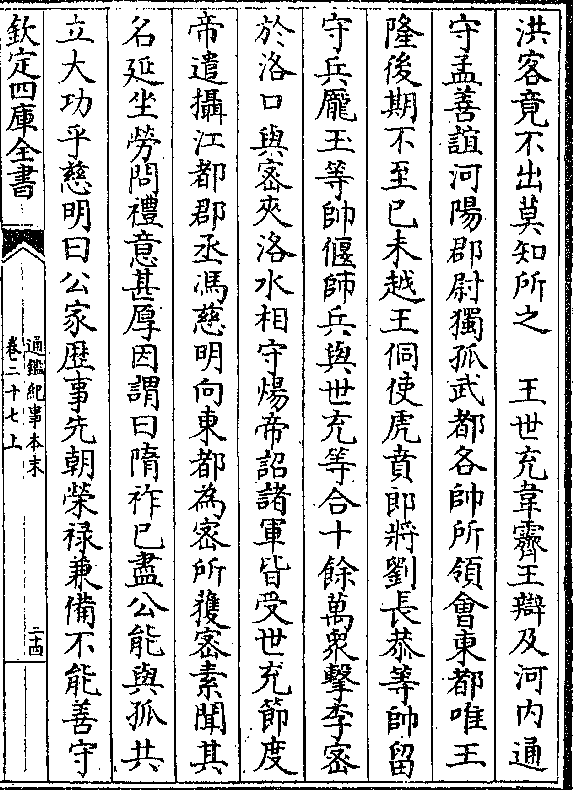 洪客竟不出莫知所之　王世充韋霽王辯及河內通
守孟善誼河陽郡尉獨孤武都各帥所領會東都唯王
隆後期不至已未越王侗使虎賁郎將劉長恭等帥留
守兵龎王等帥偃師兵與世充等合十餘萬衆擊李密
於洛口與密夾洛水相守煬帝詔諸軍皆受世充節度
帝遣攝江都郡丞馮慈明向東都為密所獲密素聞其
名延坐勞問禮意甚厚因謂曰隋祚已盡公能與孤共
立大功乎慈明曰公家歴事先朝榮禄兼備不能善守
欽定四庫全書
通鑑紀事本末
卷二十七上
二十四